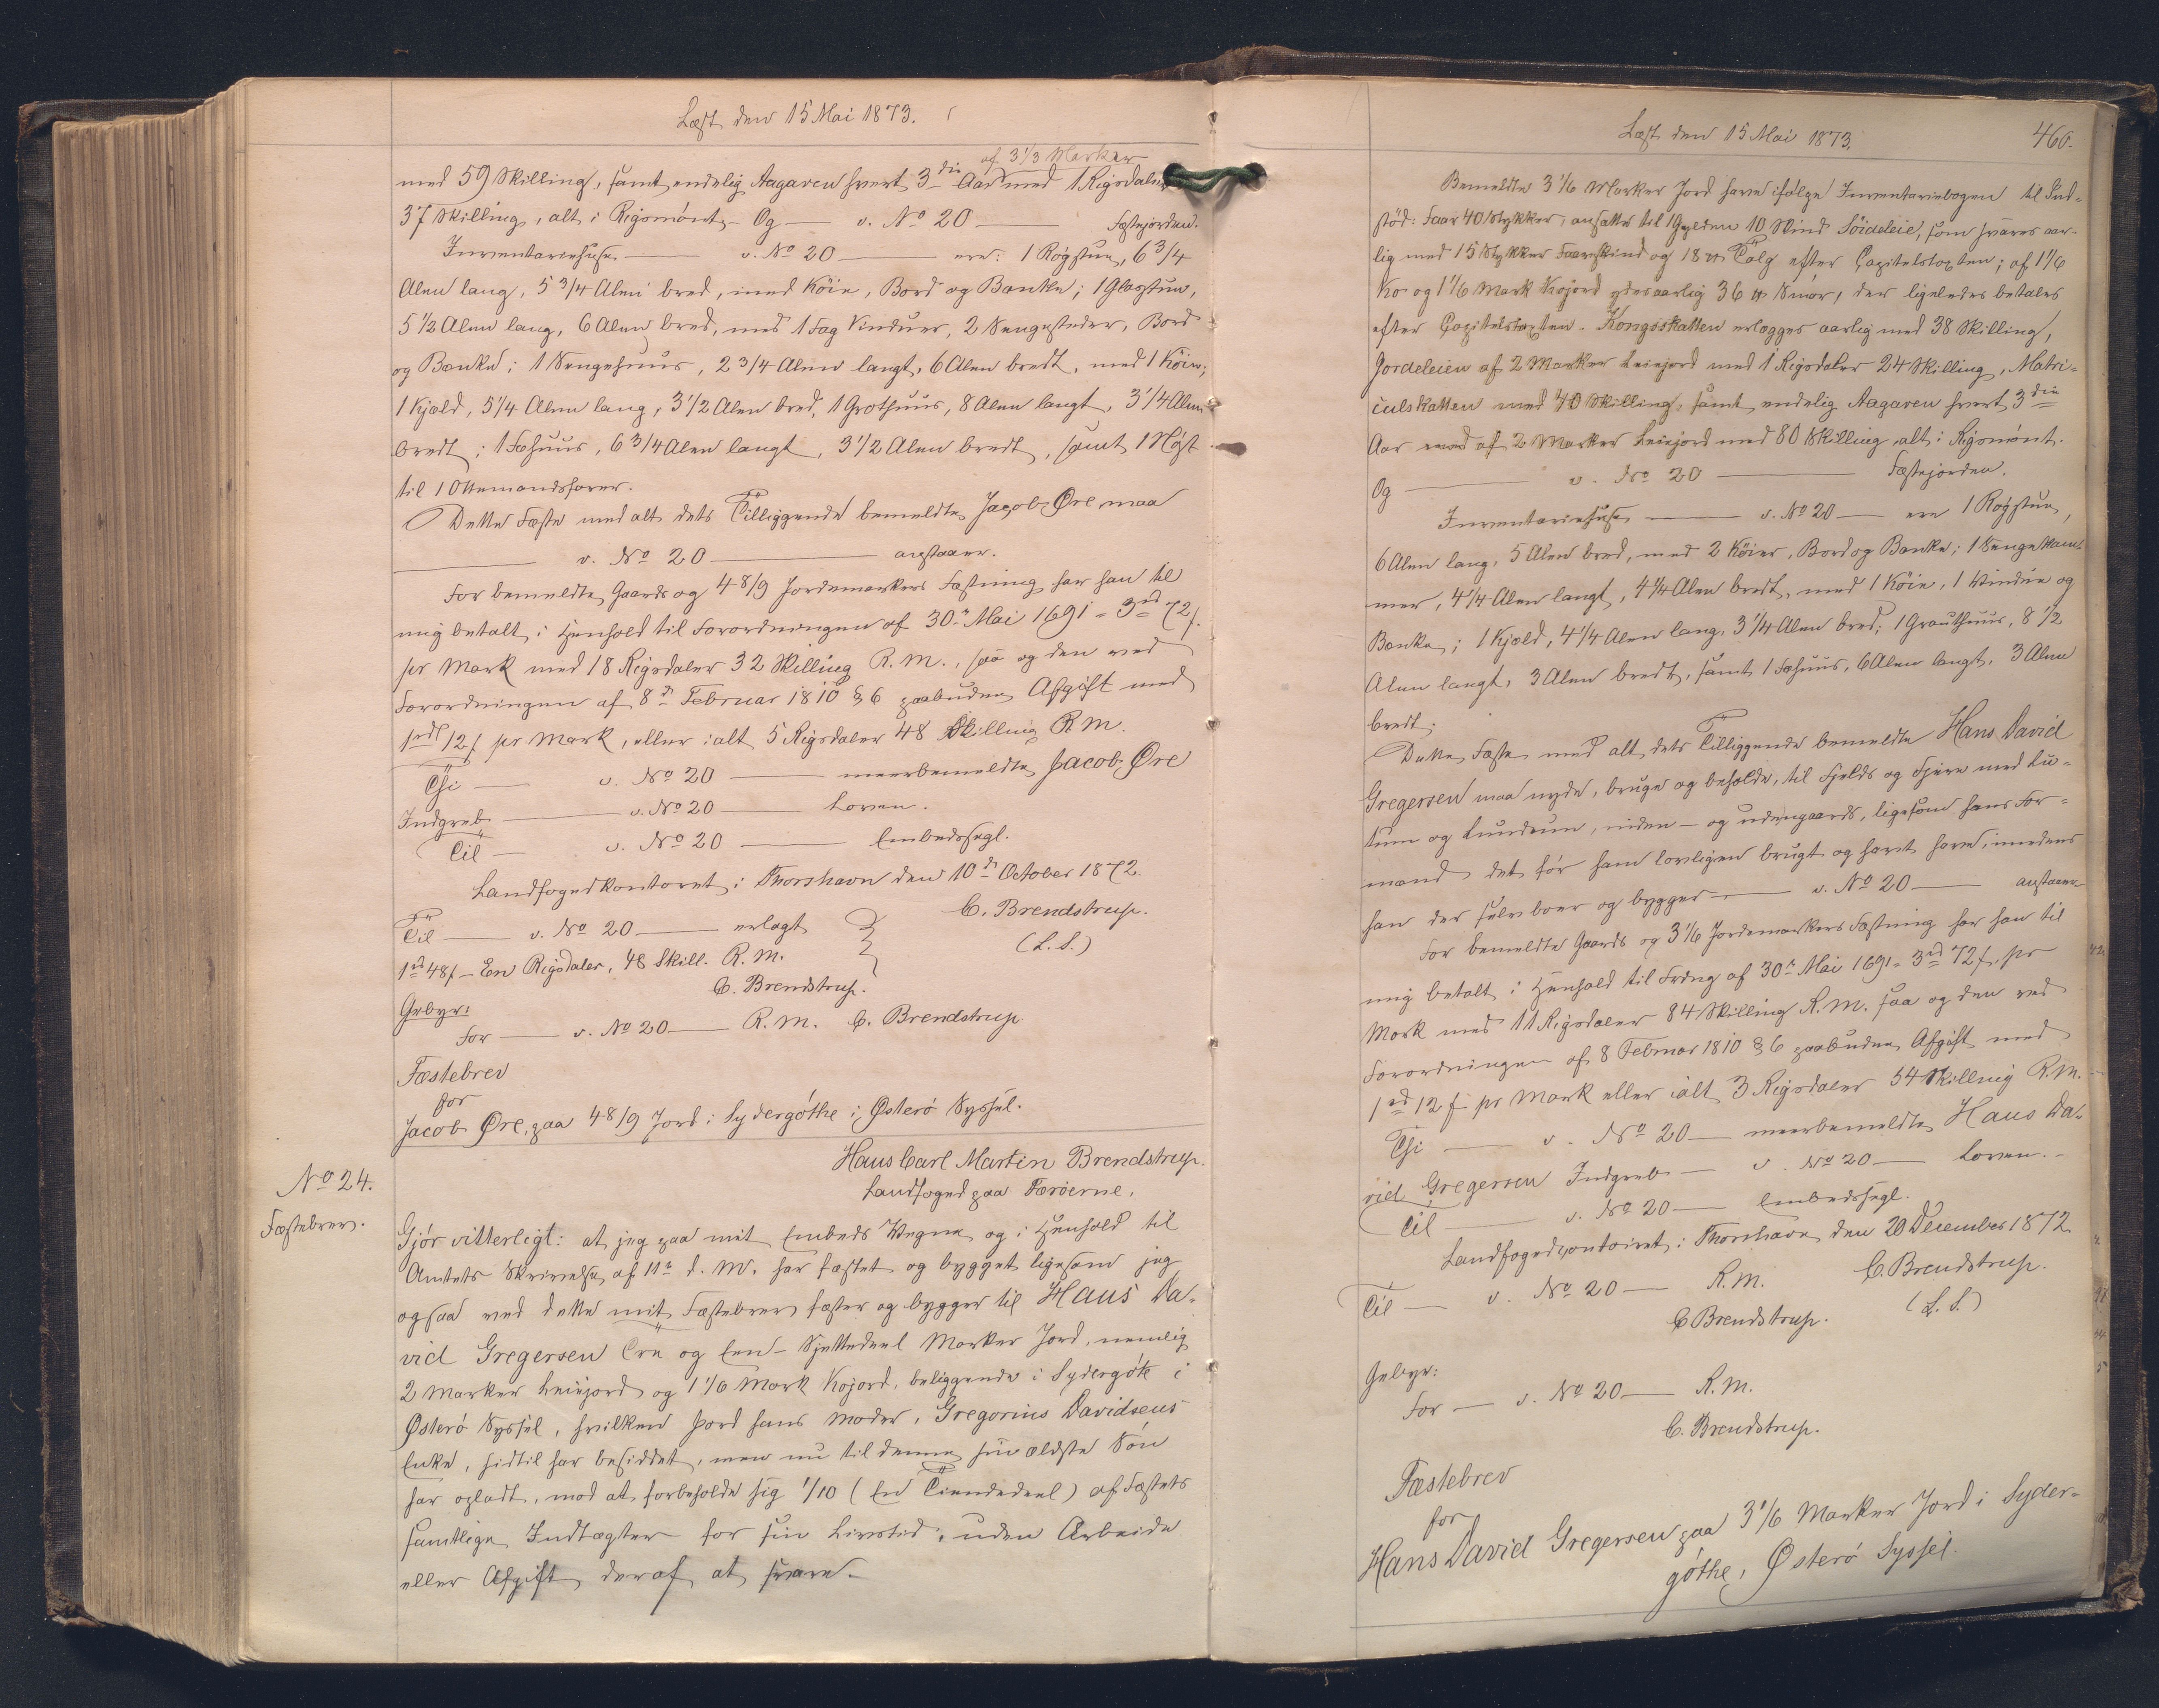 Læst den 15 Mai 1873.
af 3 1/3 Marker
med 59 Skilling, samt endelig Aagaven hvert 3die Aar med 1 Rigsdaler
37 Skilling, alt i Rigsmønt. Og — v. No 20 — Fæstejorden.
Inventariehuse — v. No 20 — ere: 1 Røgstue, 6 3/4
Alen lang, 5 3/4 Alen bred, med Köie, Bord og Bænke; 1 Glasstue,
5 1/2 Alen lang, 6 Alen bred, med 1 Fag Vinduer, 2 Sengesteder, Bord
og Bænke; 1 Sengehuus, 2 3/4 Alen langt, 6 Alen bredt, med 1 Köie;
1 Kjald, 5 1/4 Alen lang, 3 1/2 Alen bred, 1 Grothuus, 8 Alen langt, 3 1/4 Alen
bredt; 1 Fæhuus, 6 3/4 Alen langt, 3 1/2 Alen bredt, samt 1 Nøst
til 1 Ottemandsfarer.
Dette Fæste med alt dets Tilliggende bemeldte Jacob Øre maa
— v. No 20 — anstaaer.
For bemeldte Gaards og 4 8/9 Jordemarkers Fæstning har han til
mig betalt i Henhold til Forordningen af 30te Mai 1691 = 3rd 72 s.
pr Mark med 18 Rigsdaler 32 Skilling R. M., saa og den ved
Forordningen af 8de Februar 1810 § 6 paabudne Afgift med
1rdl 12 s pr Mark, eller ialt 5 Rigsdaler 48 Skilling R M.
Thi — v. No 20 — meerbemeldte Jacob Øre
Indgreb — v. No 20 — Loven.
Til — v. No 20 — Embedssegl.
Landfogedkontoret i Thorshavn den 10de October 1872.
C. Brendstrup.
Til — v. No 20 — erlagt
(L. S.)
1rd 48 s — Een Rigsdaler, 48 Skill. R. M.
C. Brendstrup.
Gebyr:
For — v. No 20 — R. M. C. Brendstrup
Fæstebrev
for
Jacob Øre, paa 4 8/9 Jord i Sydergöthe i Østerö Syssel.
No 24.
Fæstebrev.
Hans Carl Martin Brendstrup.
Landfoged paa Færöerne,
Gjör vitterligt: at jeg paa mit Embeds Vegne og i Henhold til
Amtets Skrivelse af 11te d. M. har fæstet og bygget ligesom jeg
ogsaa ved dette mit Fæstebrev fæster og bygger til Hans Da-
vid Gregersen Tre og Een-Sjettedeel Marker Jord, nemlig
2 Marker Leiejord og 1 1/6 Mark Kojord, beliggende i Sydergöte i
Østerö Syssel, hvilken Jord hans Moder, Gregorius Davidsens
Enke, hidtil har besiddet, men nu til denne sin ældste Sön
har opladt, mod at forbeholde sig 1/10 (En Tiendedeel) af Fæstets
samtlige Indtægter for sin Livstid, uden Arbeide
eller Afgift deraf at svare.
Læst den 15 Mai 1873.
460.
Bemeldte 3 1/6 Marker Jord have ifølge Inventariebogen til Ind-
stöd: Faar 40 Stykker, ansatte til 1 Gylden 10 Skind Söideleie, som svares aar-
lig med 15 Stykker Faareskind og 18 ℔ Tælg efter Capitelstaxten; af 1 1/6
Ko og 1 1/6 Mark Kojord ydes aarlig 36 ℔ Smör, der ligeledes betales
efter Capitelstaxten. Kongsskatten erlægges aarlig med 38 Skilling,
Jordeleien af 2 Marker Leiejord med 1 Rigsdaler 24 Skilling, Matri-
culskatten med 40 Skilling, samt endelig Aagaven hvert 3die
Aar med af 2 Marker Leiejord med 80 Skilling alt i Rigsmönt.
Og — v. No 20 — Fæstejorden.
Inventariehuse — v. No 20 — ere 1 Røgstue,
6 Alen lang, 5 Alen bred, med 2 Köier, Bord og Bænke; 1 Sengekam-
mer, 4 1/4 Alen langt, 4 1/4 Alen bredt, med 1 Köie, 1 Vindue og
Bænke; 1 Kjald, 4 1/4 Alen lang, 3 1/4 Alen bred; 1 Grauthuus, 8 1/2
Alen langt, 3 Alen bredt, samt 1 Fæhuus, 6 Alen langt, 3 Alen
bredt.
Dette Fæste med alt dets Tilliggende bemeldte Hans David
Gregersen maa nyde, bruge og beholde, til Fjelds og Fjære med Lu-
tum og Lundum, inden- og udengaards, ligesom hans For-
mand det för ham lovligen brugt og havt have, imedens
han der selv boer og bygger — v. No 20 — anstaaer.
For bemeldte Gaards og 3 1/6 Jordemarkers Fæstning har han til
mig betalt i Henhold til Frdng af 30te Mai 1691 = 3rd 72 s. pr
Mark med 11 Rigsdaler 84 Skilling R. M. saa og den ved
Forordningen af 8 Februar 1810 § 6 paabudne Afgift med
1rd 12 s pr Mark eller ialt 3 Rigsdaler 54 Skilling R. M.
Thi — v. No 20 — meerbemeldte Hans Da-
vid Gregersen Indgreb — v. No 20 — Loven.
Til — v. No 20 — Embedssegl.
Landfogedcontoiret i Thorshavn den 20 December 1872
C. Brendstrup.
Til — v. No 20 — R. M.
(L. S.)
C Brendstrup.
Gebyr:
For — v. No 20 — R. M.
C. Brendstrup.
Fæstebrev
for
Hans David Gregersen paa 3 1/6 Marker Jord i Syder-
göthe, Østerö Syssel.